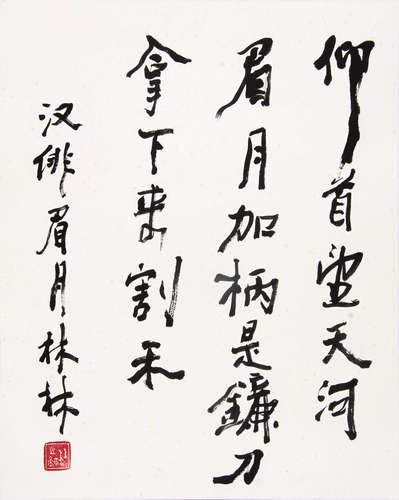 仰首望天河
眉月加柄是镰刀
拿下来割禾
汉俳眉月林林